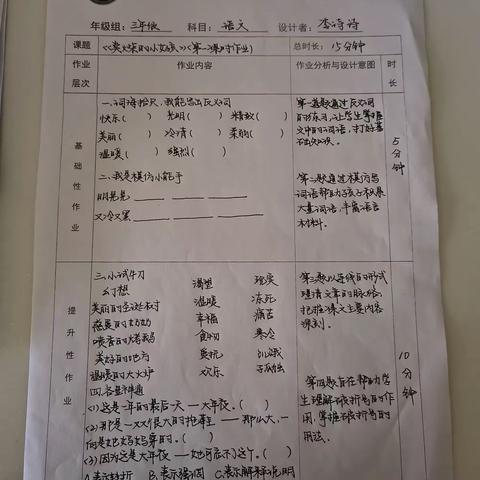 年级组：三年级 科目：语文 设计者：李诗诗
课题 《卖火柴的小女孩》（第一课时作业） 总时长：15分钟
作业层次 作业内容 作业分析与设计意图 时长
基础性作业
一、词海拾贝，我能写出反义词
快乐（ ） 光明（ ） 精致（ ）
美丽（ ） 冷清（ ） 柔丽（ ）
温暖（ ） 强烈（ ）
二、我是模仿小能手
明晃晃
又冷又黑
第一道题通过反义词
的练习，让学生掌握
文中的词语，打好基
础知识。
第二题通过模仿写
词语帮助孩子积累
大量词语，丰富语言
材料。
5分钟
提升性作业
三、小试牛刀
幻想 渴望 现实
美丽的圣诞树 温暖 冻死
慈爱的奶奶 幸福 痛苦
喷香的烤鹅 食物 寒冷
美好的地方 慈抚 饥饿
温暖的大火炉 欢乐 孤独
四、各显神通
（1）这是一年的最后一天——大年夜。（ ）
（2）那是一双很大的拖鞋——那么大，一
向是她妈妈穿的。（ ）
（3）因为这是大年夜——她可忘不了这个。（ ）
A.表示转折 B.表示强调 C.表示解释说明
第三题以连线的形式
理清文章的脉络，
把握课文主要内容
课到。
第四题旨在帮助学
生理解破折号的作
用，掌握破折号的
用法。
10分钟